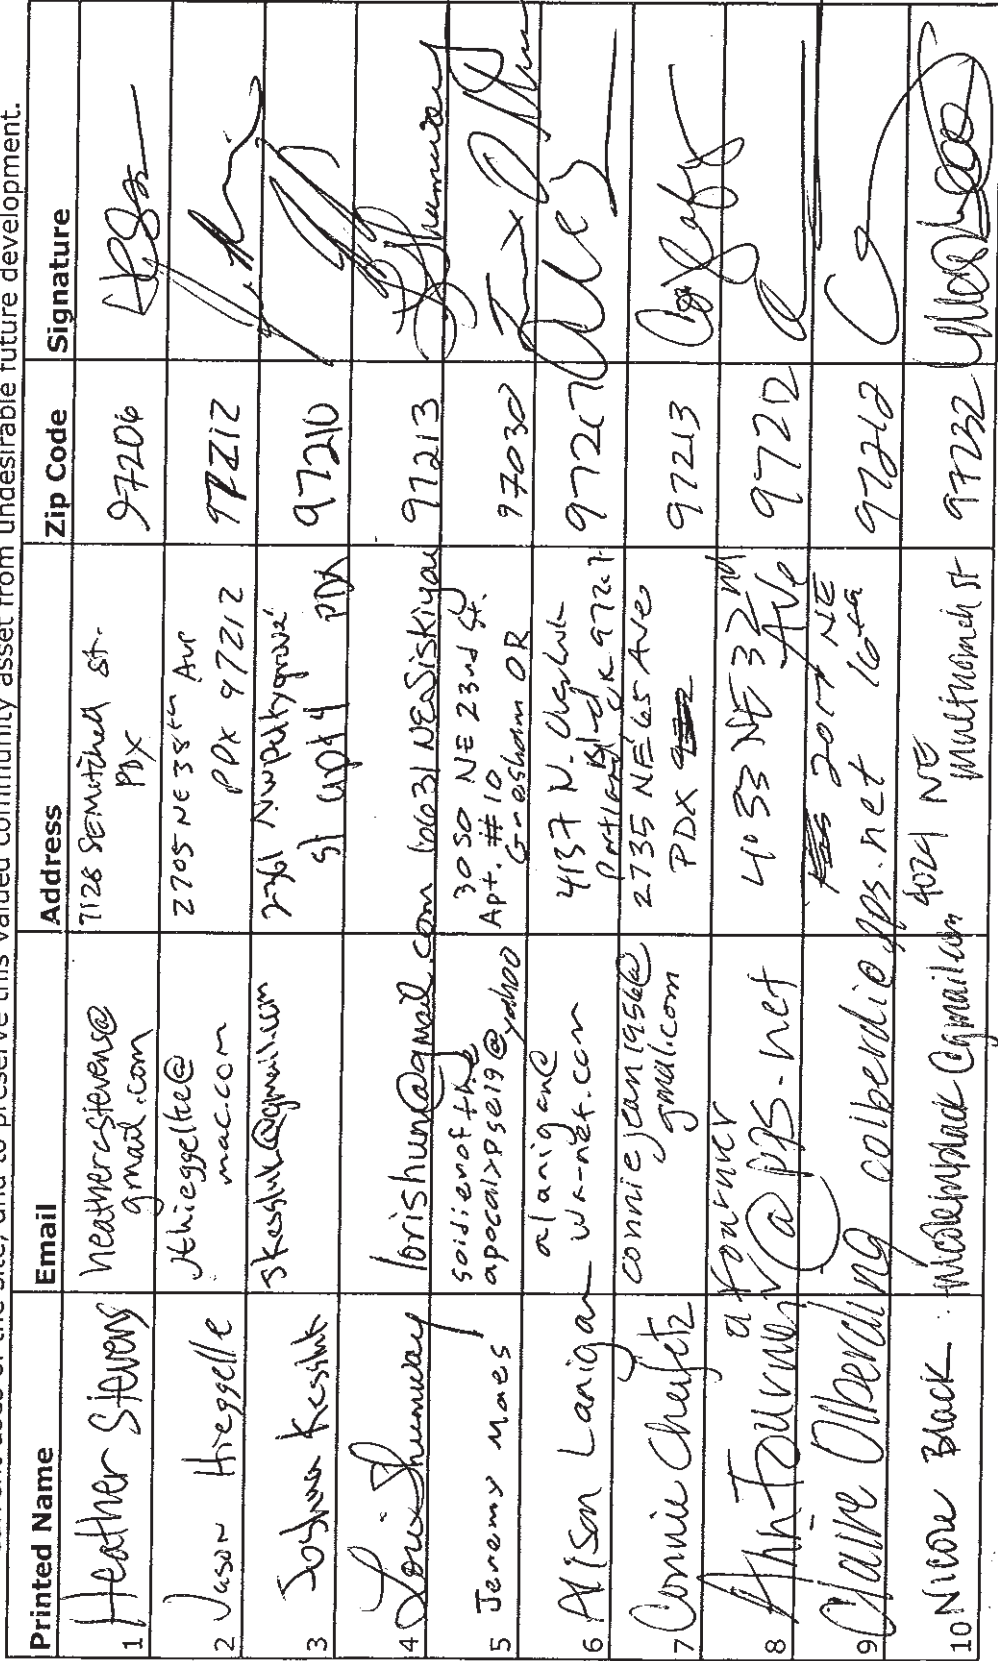 current uses of the site, and to preserve this valued community asset from undesirable future development.
Printed Name Email Address Zip Code Signature
1 Heather Stevens heatherrstevens@ gmail.com 7128 SE Mitchell St. PDX 97206
2 Jason Hieggelke jthieggelke@ mac.com 2705 NE 38th Ave PDX 97212 97212
3 Joshua Kesslek jkesslek@gmail.com 2361 NW Pettygrove St apt 4 PDX 97210
4 Lori Shumway lorishum@gmail.com 6631 NE Siskiyou 97213
5 Jeremy Maes soldierofthe apocalypse19@yahoo 3050 NE 23rd St. Apt. #10 Gresham OR 97030
6 Alison Lanigan alanigan@ wa-net.com 4137 N. Portland 97217 97217
7 Connie Cheifetz conniejean1956@ gmail.com 2735 NE 65 Ave PDX 97213
8 Ann Fourner afourner @pps.net 4033 NE 32nd Ave 97212
9 Claire Olberding colberdi@pps.net NE 16th 97212
10 Nicole Black nicolemblack@gmail.com 4024 NE Multnomah St 97232